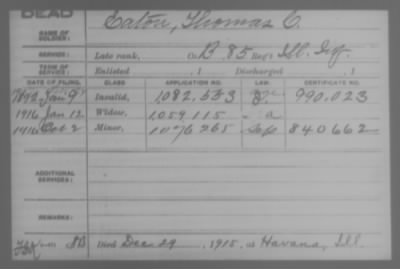 DEAD
NAME OF SOLDIER: Eaton, Thomas C.
SERVICE: Late rank, Co. B, 85 Reg't Ill. Inf.
TERM OF SERVICE: Enlisted , 1 Discharged , 1
DATE OF FILING. CLASS. APPLICATION NO. LAW. CERTIFICATE NO.
Jan 9 Invalid, 1,082,533 990,023
1916 Jan 12 Widow, 1,059,115 a
1916 Oct 2 Minor, 1076265 840662
ADDITIONAL SERVICES:
REMARKS:
Died Dec. 29, 1915, at Havana, Ill.